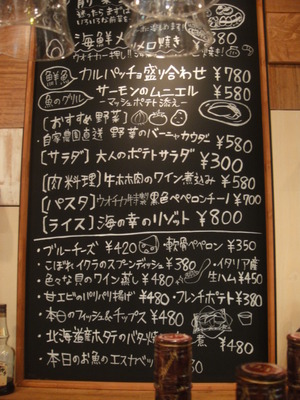 前菜
迷ったらまずは
海鮮 メロ焼き
ウオチカ一押し!! ¥380
[鮮魚] カルパッチョ盛り合わせ ¥780
魚のグリル サーモンのムニエル ¥580
~マッシュポテト添え~
[おすすめ野菜]
・自家農園直送 野菜のバーニャカウダ ¥580
[サラダ] 大人のポテトサラダ ¥300
[肉料理] 牛ホホ肉のワイン煮込み ¥580
[パスタ] ウオチカ特製 黒色ペペロンチーノ ¥700
[ライス] 海の幸のリゾット ¥800
・ブルーチーズ ¥420 軟骨ペペロン ¥350
・こぼれイクラのスプーンディッシュ ¥380 ・イタリア産
・色々な貝のワイン蒸し ¥480 生ハム ¥450
・甘エビのパリパリ揚げ ¥480 ・フレンチポテト ¥380
・本日のフィッシュ&チップス ¥480
・北海道産ホタテのバター焼 煮 ¥480
・本日のお魚のエスカベッ 80